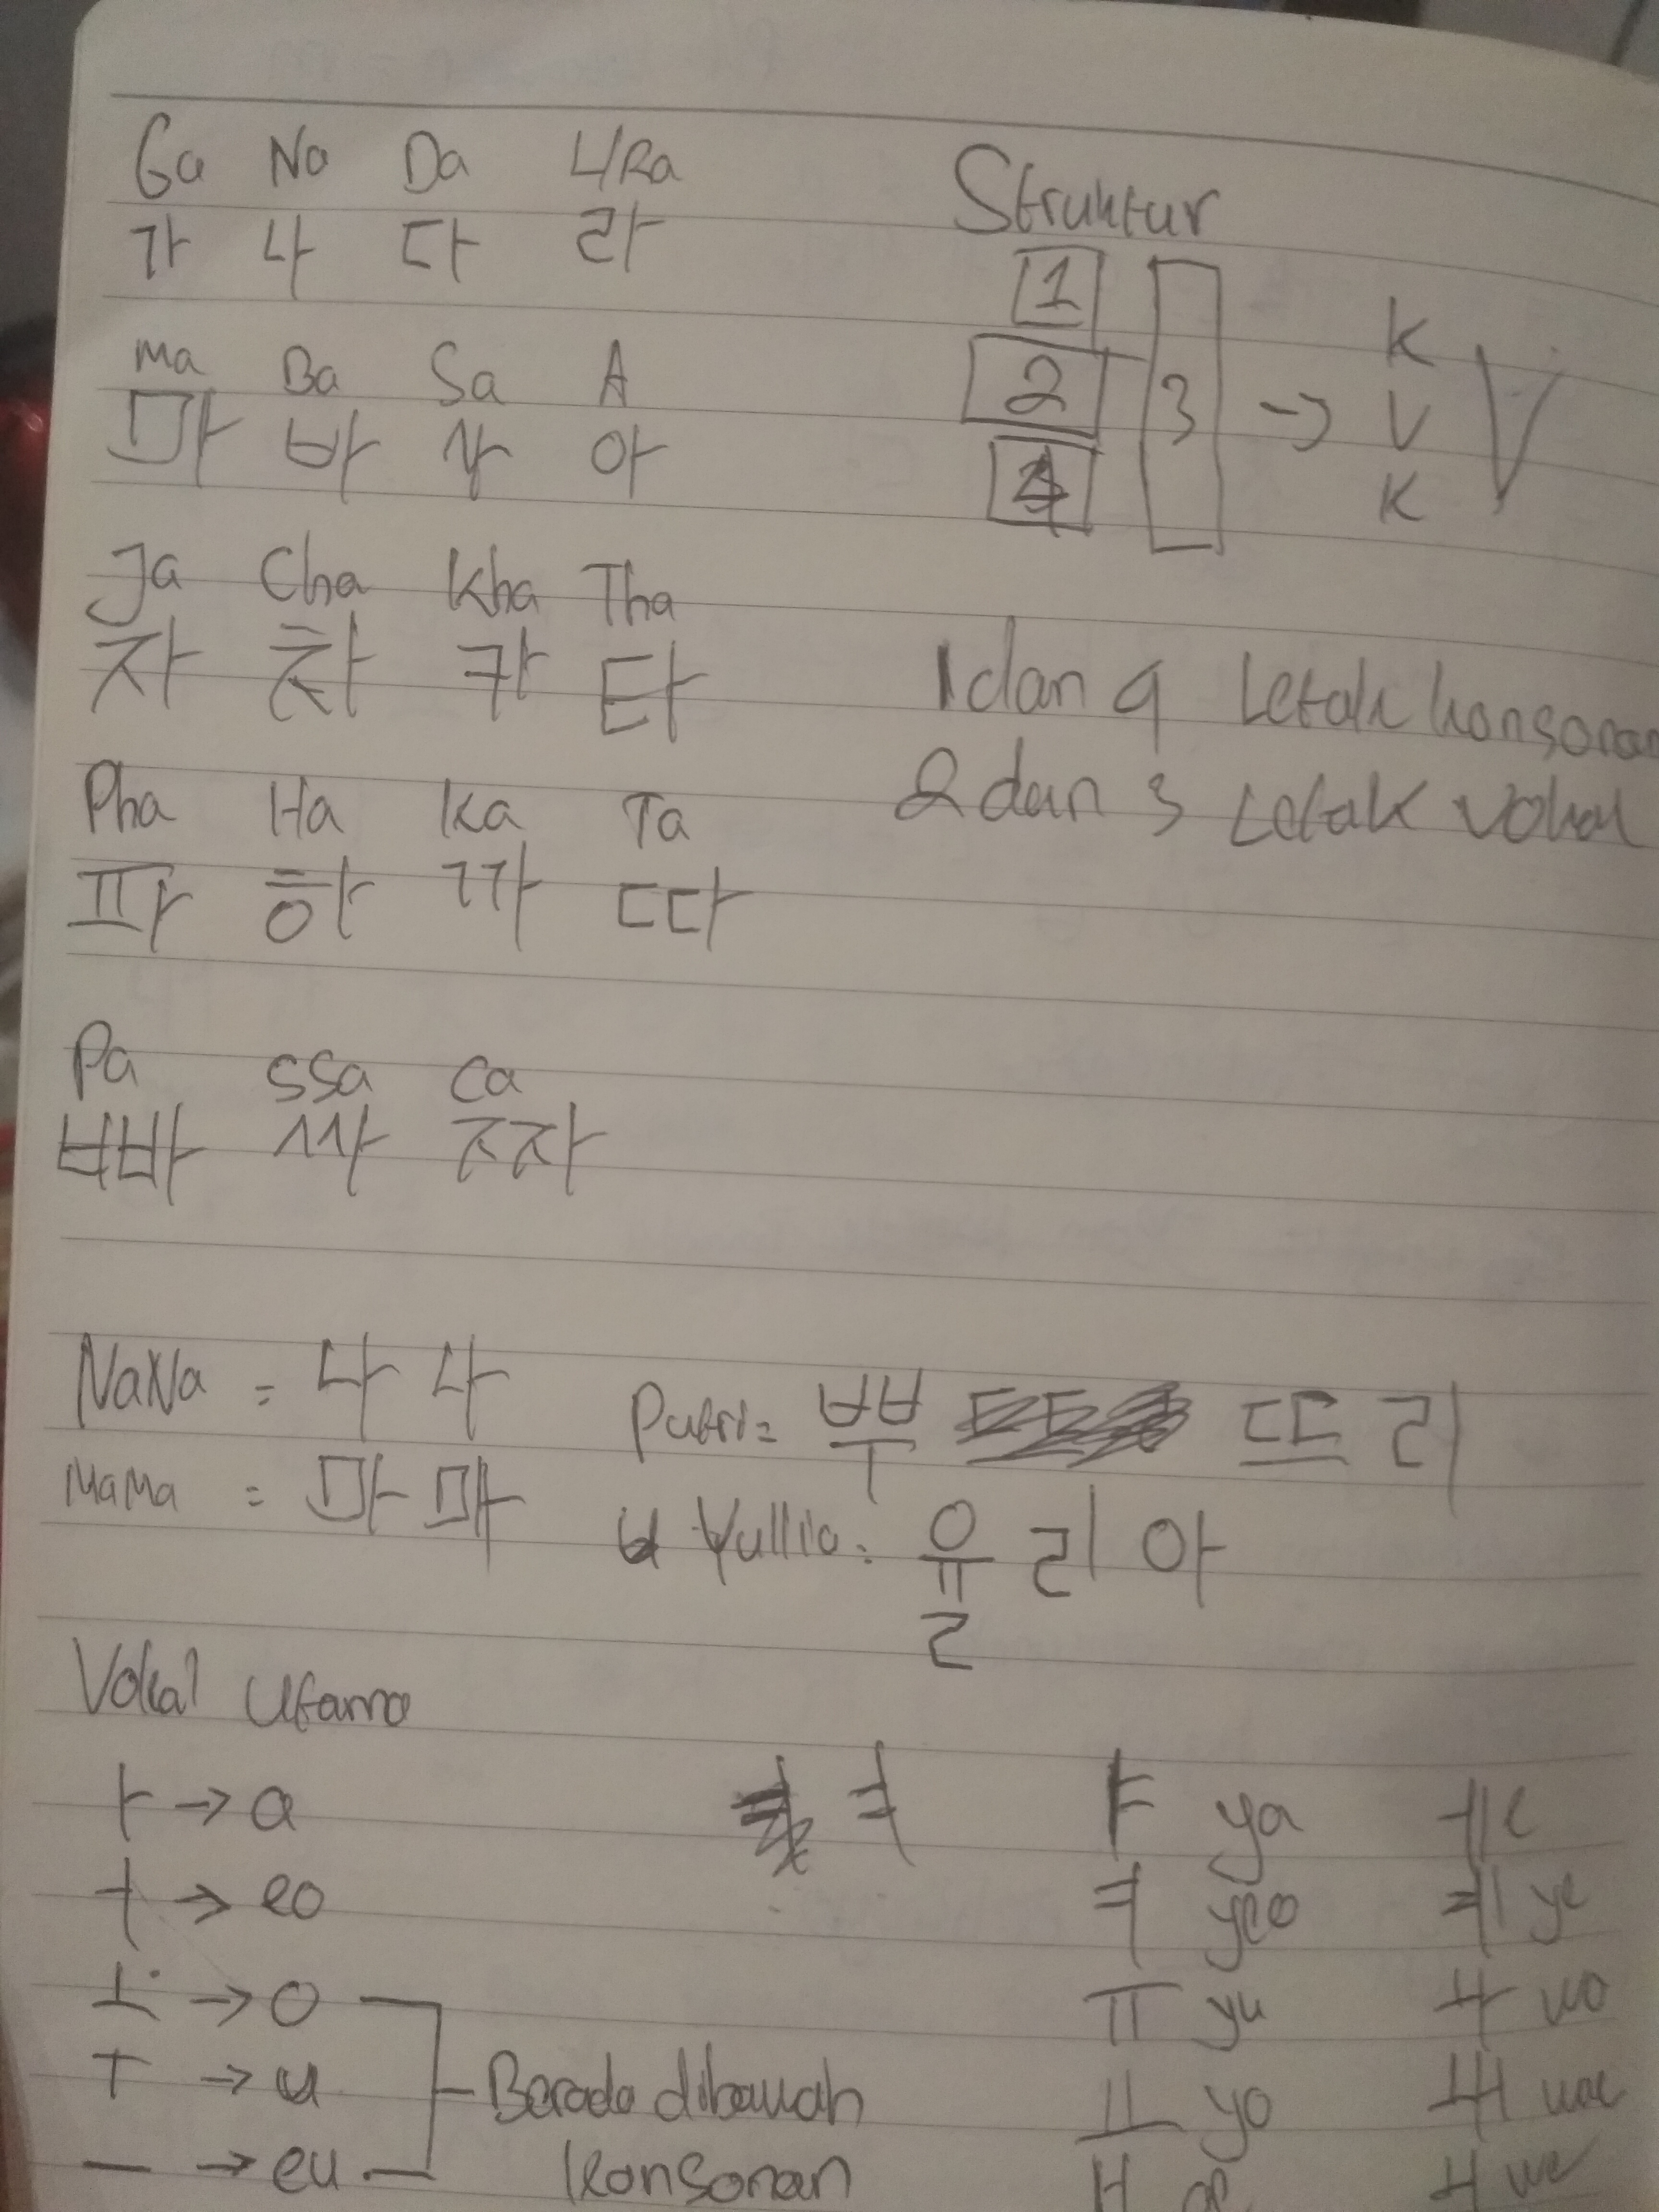 Ga Na Da L/Ra
가 나 다 라
Ma Ba Sa A
마 바 사 아
Ja Cha Kha Tha
자 차 카 타
Pha Ha Ka Ta
파 하 까 따
Pa SSa Ca
빠 싸 짜
NaNa = 나 나
MaMa = 마 마
Struktur
1
2
3
4
→ K
V
K
V
1 dan 4 Letak konsonan
2 dan 3 Letak Vokal
Putri = 뿌 뜨 리
Yullia = 율 리 아
Vokal Utama
ㅏ → a
ㅓ → eo
ㅗ → o
ㅜ → u
ㅡ → eu
Berada dibawah
konsonan
ㅕ
ㅑ ya
ㅕ yeo
ㅠ yu
ㅛ yo
ㅔ e
ㅖ ye